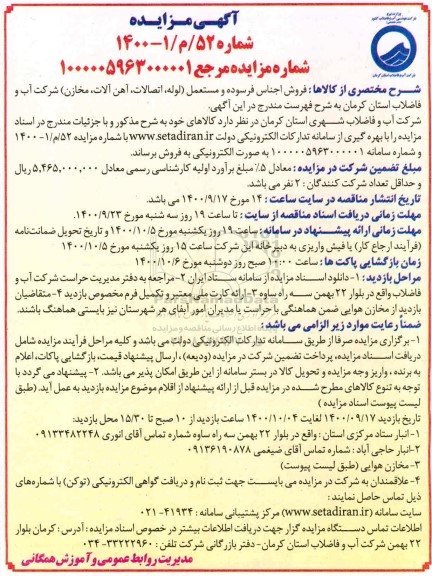 آگهی مزایده
شماره ۵۲/م/۱-۱۴۰۰
شماره مزایده مرجع ۱۰۰۰۰۰۵۹۶۳۰۰۰۰۰۱
شرکت آب و فاضلاب استان کرمان
شرح مختصری از کالاها: فروش اجناس فرسوده و مستعمل (لوله، اتصالات، آهن آلات، مخازن) شرکت آب و
فاضلاب استان کرمان به شرح فهرست مندرج در این آگهی.
شرکت آب و فاضلاب شهری استان کرمان در نظر دارد کالاهای خود به شرح مذکور و با جزئیات مندرج در اسناد
مزایده را با بهره گیری از سامانه تدارکات الکترونیکی دولت www.setadiran.ir با شماره مزایده ۵۲/م/۱-۱۴۰۰
و شماره سامانه ۱۰۰۰۰۰۵۹۶۳۰۰۰۰۰۱ به صورت الکترونیکی به فروش برساند.
مبلغ تضمین شرکت در مزایده: معادل ۵٪ مبلغ برآورد اولیه کارشناسی رسمی معادل ۵,۴۶۵,۰۰۰,۰۰۰ ریال
و حداقل تعداد شرکت کنندگان: ۲ نفر می باشد.
تاریخ انتشار مناقصه در سایت ساعت: ۱۴ مورخ ۱۴۰۰/۹/۱۷ می باشد.
مهلت زمانی دریافت اسناد مناقصه از سایت: تا ساعت ۱۹ روز سه شنبه مورخ ۱۴۰۰/۹/۲۳.
مهلت زمانی ارائه پیشنهاد در سامانه: ساعت ۱۹ روز یکشنبه مورخ ۱۴۰۰/۱۰/۵ و تاریخ تحویل ضمانت‌نامه
(فرآیند ارجاع کار) یا فیش واریزی به دبیرخانه این شرکت ساعت ۱۵ روز یکشنبه مورخ ۱۴۰۰/۱۰/۵
زمان بازگشایی پاکت ها: ساعت ۱۰:۰۰ صبح روز دوشنبه مورخ ۱۴۰۰/۱۰/۶
مراحل بازدید: ۱-دانلود اسناد مزایده از سامانه ستاد ایران ۲-مراجعه به دفتر مدیریت حراست شرکت آب و
فاضلاب واقع در بلوار ۲۲ بهمن سه راه ساوه ۳-ارائه کارت ملی معتبر و تکمیل فرم مخصوص بازدید ۴-متقاضیان
بازدید از مخازن هوایی ضمن هماهنگی با حراست یا مدیران امور آبفای هر شهرستان نیز بایستی هماهنگ باشند.
ضمناً رعایت موارد زیر الزامی می باشد:
۱-برگزاری مزایده صرفا از طریق سامانه تدارکات الکترونیکی دولت می باشد و کلیه مراحل فرآیند مزایده شامل
دریافت اسناد مزایده، پرداخت تضمین شرکت در مزایده (ودیعه)، ارسال پیشنهاد قیمت، بازگشایی پاکات، اعلام
به برنده، واریز وجه مزایده و تحویل کالا در بستر سامانه از این طریق امکان پذیر می باشد. ۲-پیشنهاد می گردد با
توجه به تنوع کالاهای مطرح شده در مزایده قبل از ارائه پیشنهاد از اقلام موضوع مزایده بازدید به عمل آید. (طبق
لیست پیوست اسناد مزایده)
تاریخ بازدید ۱۴۰۰/۰۹/۱۷ لغایت ۱۴۰۰/۱۰/۰۴ ساعت بازدید از ۱۰ صبح تا ۱۵/۳۰ محل بازدید:
۱-انبار ستاد مرکزی استان: واقع در بلوار ۲۲ بهمن سه راه ساوه شماره تماس آقای انوری ۰۹۱۳۳۴۸۲۲۴۸
۲-انبار حاجی آباد: شماره تماس آقای ضیغمی ۰۹۱۳۶۱۹۰۸۷۸
۳-مخازن هوایی (طبق لیست پیوست)
۴-علاقمندان به شرکت در مزایده می بایست جهت ثبت نام و دریافت گواهی الکترونیکی (توکن) با شماره‌های
ذیل تماس حاصل نمایند:
سایت سامانه (www.setadiran.ir) مرکز پشتیبانی سامانه: ۴۱۹۳۴-۰۲۱
اطلاعات تماس دستگاه مزایده گزار جهت دریافت اطلاعات بیشتر در خصوص اسناد مزایده: آدرس: کرمان بلوار
۲۲ بهمن شرکت آب و فاضلاب استان کرمان- دفتر بازرگانی شرکت تلفن: ۳۳۲۲۲۹۶۰-۰۳۴
مدیریت روابط عمومی و آموزش همگانی